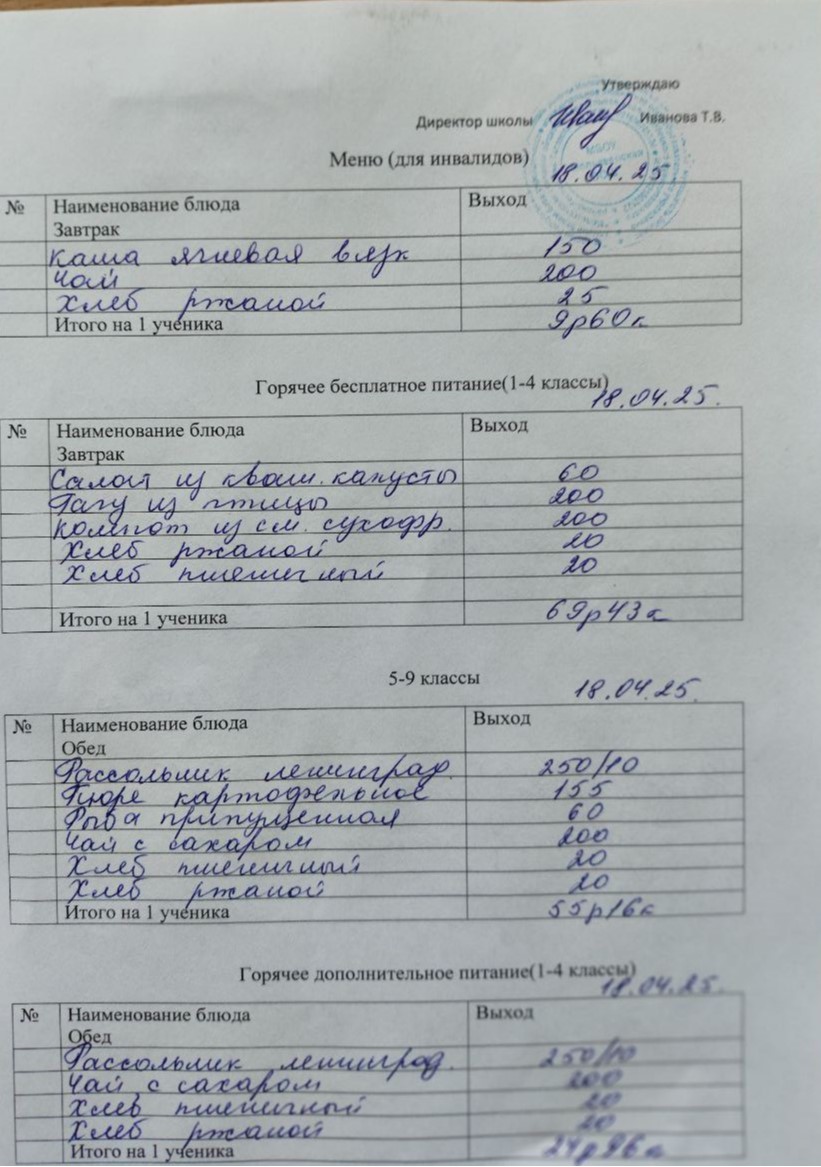 Утверждаю
Директор школы Иванова Т.В.
МБОУ
Меню (для инвалидов)
18.04.25.
№ Наименование блюда Выход
Завтрак
Каша ячневая вязк 150
Чай 200
Хлеб ржаной 25
Итого на 1 ученика 9р60к
Горячее бесплатное питание(1-4 классы)
18.04.25.
№ Наименование блюда Выход
Завтрак
Салат из кваш. капусты 60
Рагу из птицы 200
Компот из см. сухофр. 200
Хлеб ржаной 20
Хлеб пшеничный 20
Итого на 1 ученика 69р43к
5-9 классы
18.04.25.
№ Наименование блюда Выход
Обед
Рассольник ленинград. 250/10
Пюре картофельное 155
Рыба припущенная 60
Чай с сахаром 200
Хлеб пшеничный 20
Хлеб ржаной 20
Итого на 1 ученика 55р16к
Горячее дополнительное питание(1-4 классы)
18.04.25.
№ Наименование блюда Выход
Обед
Рассольник ленинград. 250/10
Чай с сахаром 200
Хлеб пшеничный 20
Хлеб ржаной 20
Итого на 1 ученика 24р96к